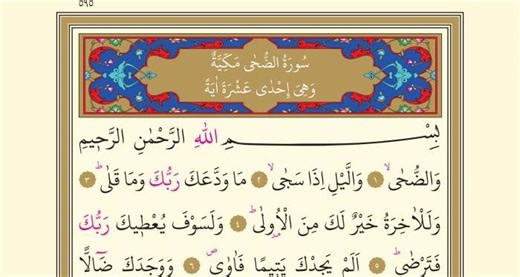 ٥٩٥
سُورَةُ الضُّحٰى مَكِّيَّةٌ
وَهِيَ اِحْدٰى عَشْرَةَ اٰيَةً
بِسْمِ اللّٰهِ الرَّحْمٰنِ الرَّحٖيمِ
وَالضُّحٰىۙ ﴿١﴾ وَالَّيْلِ اِذَا سَجٰىۙ ﴿٢﴾ مَا وَدَّعَكَ رَبُّكَ وَمَا قَلٰىۜ ﴿٣﴾
وَلَلْاٰخِرَةُ خَيْرٌ لَكَ مِنَ الْاُو۫لٰىۜ ﴿٤﴾ وَلَسَوْفَ يُعْطٖيكَ رَبُّكَ
فَتَرْضٰىۜ ﴿٥﴾ اَلَمْ يَجِدْكَ يَتٖيمًا فَاٰوٰىۖ ﴿٦﴾ وَوَجَدَكَ ضَٓالًّا